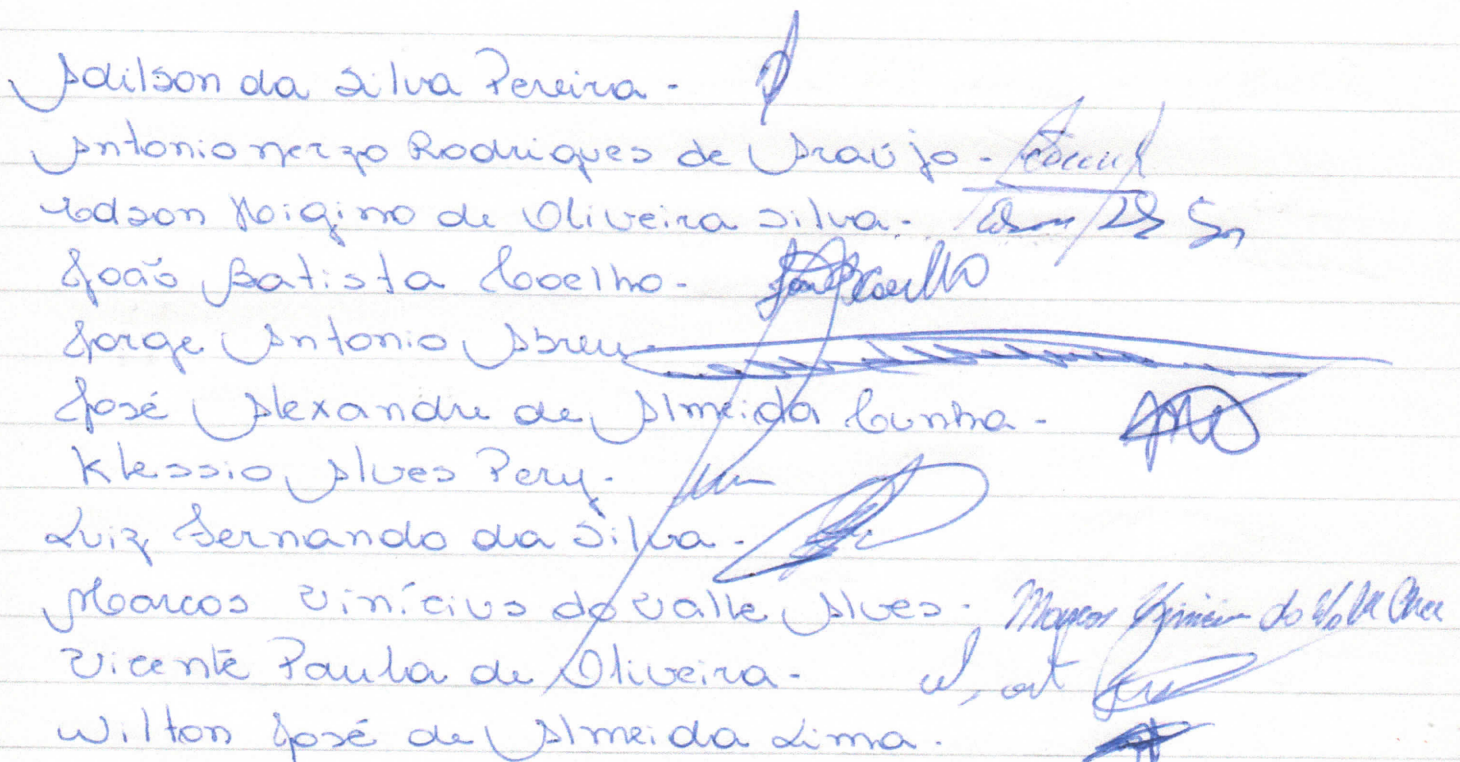 Adilson da Silva Pereira -
Antonio Nerzo Rodrigues de Araújo -
Edson Higino de Oliveira Silva -
João Batista Coelho -
Jorge Antonio Abreu
José Alexandre de Almeida Cunha -
Klessio Alves Pery -
Luiz Fernando da Silva -
Marcos Vinícius do Valle Alves - Marcos Vinicius do Valle Alves
Vicente Paula de Oliveira -
Wilton José de Almeida Lima -